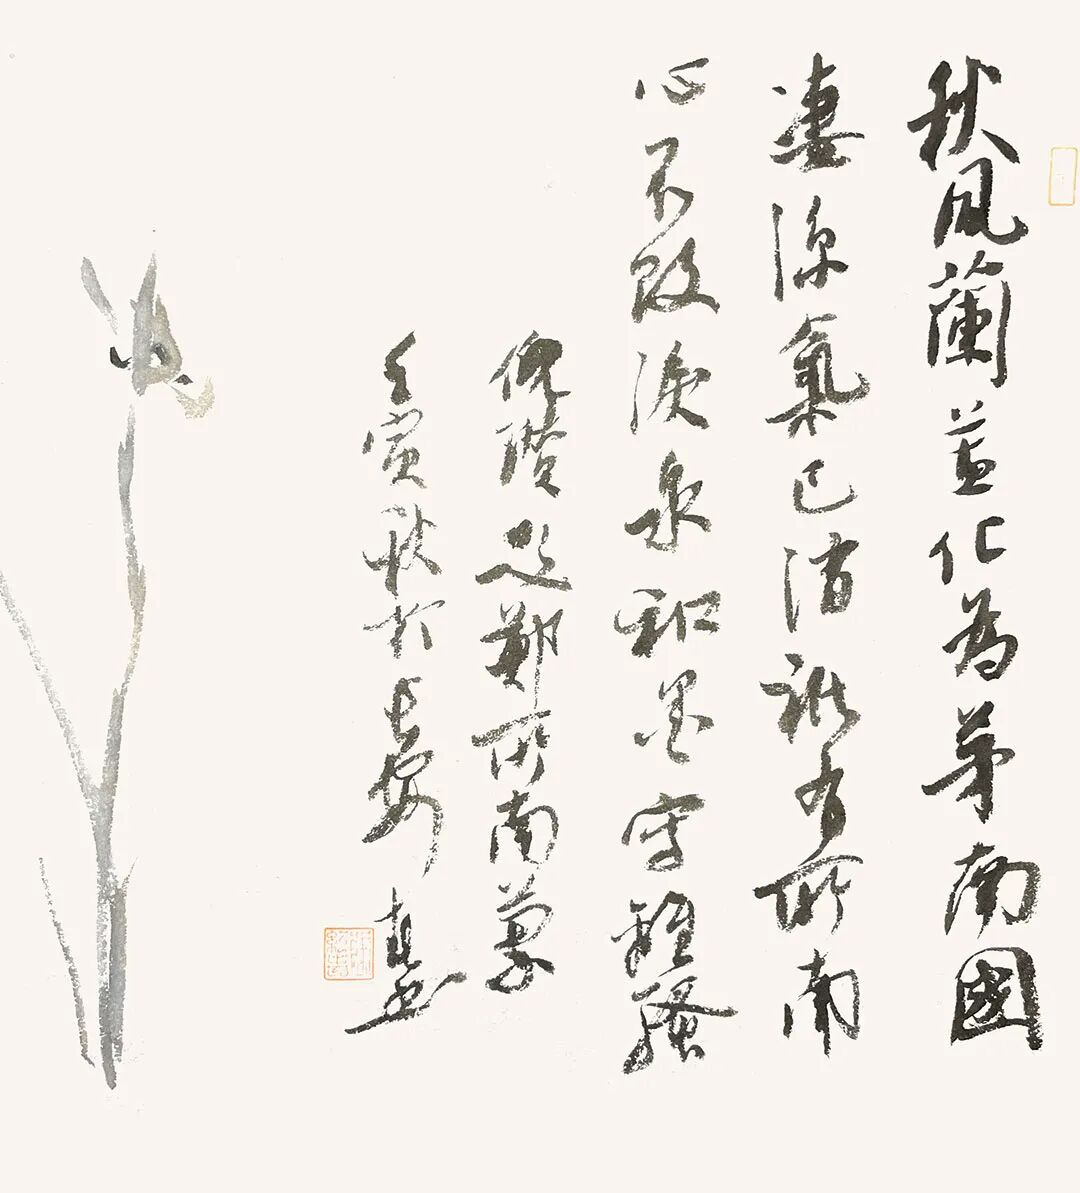 秋風蘭蕙化為茅南國
凄涼氣已消祇有所南
心不改淚泉和墨寫離騷
倪瓚題鄭所南蘭
壬寅秋於長安